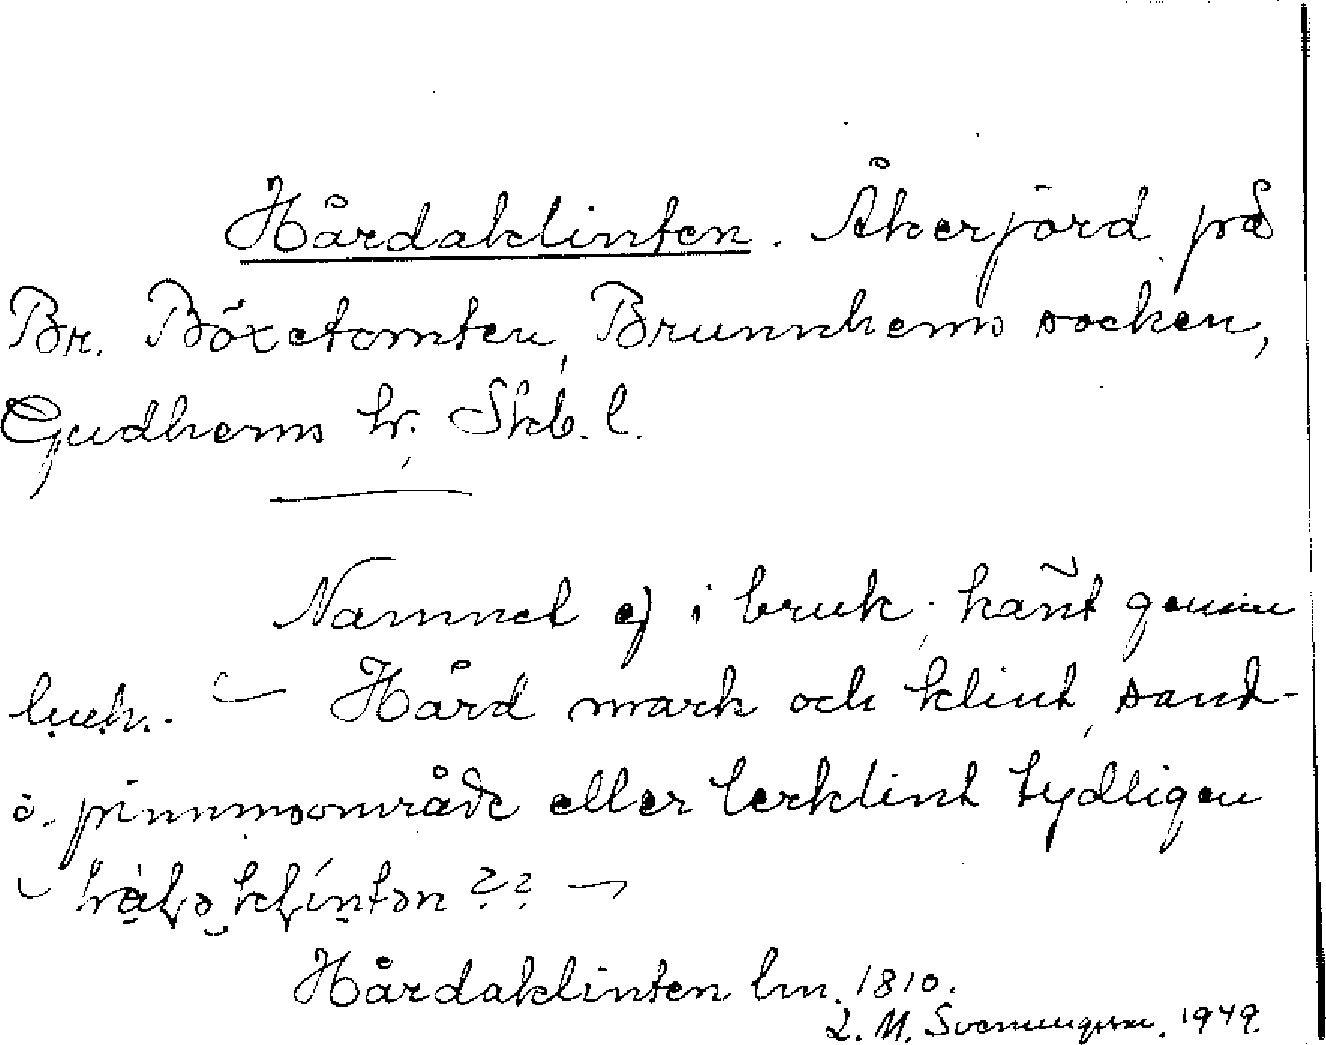 Hårdaklinten. Åkerjord på
Br. Böxetomten, Brunnhems socken,
Gudhems hr. Skb. l.
Namnet ej i bruk; känt genom
luck. – Hård mark och klint, sand-
o. pinnmoområde eller lerklint tydligen
Hårdaklinten lm. 1810.
L. M. Svenungsson. 1949.